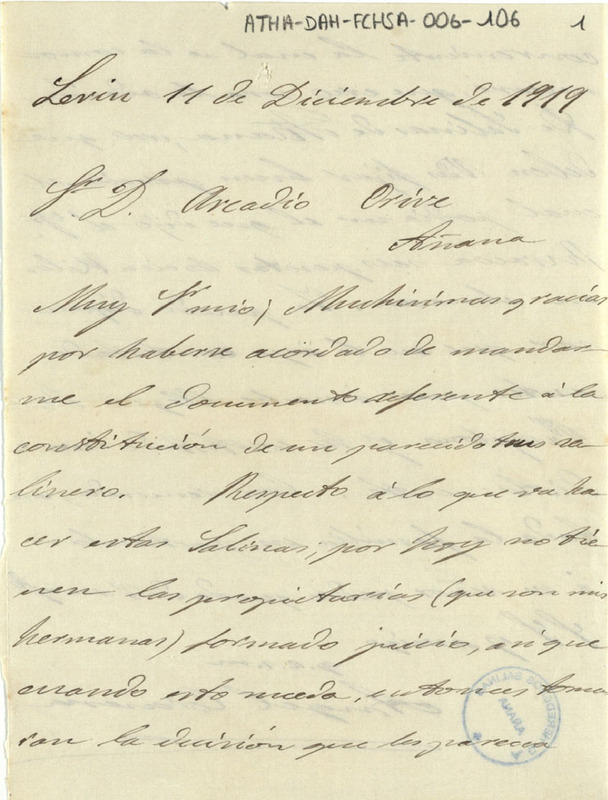 ATHA-DAH-FCHSA-006-106 1
Lerin 11 de Diciembre de 1919
Sr. D. Arcadio Orive
Añana
Muy Sr mio; Muchisimas gracias
por haberse acordado de mandar-
me el documento referente á la
constitución de un parecido sa
linero. Respecto á lo que va ha
cer estas Salinas, por hoy no tie
nen las propietarias (que son mis
hermanas) formado juicio, asi que
cuando esto suceda, entonces toma
ran la decisión que les parezca
SALINAS
AÑANA